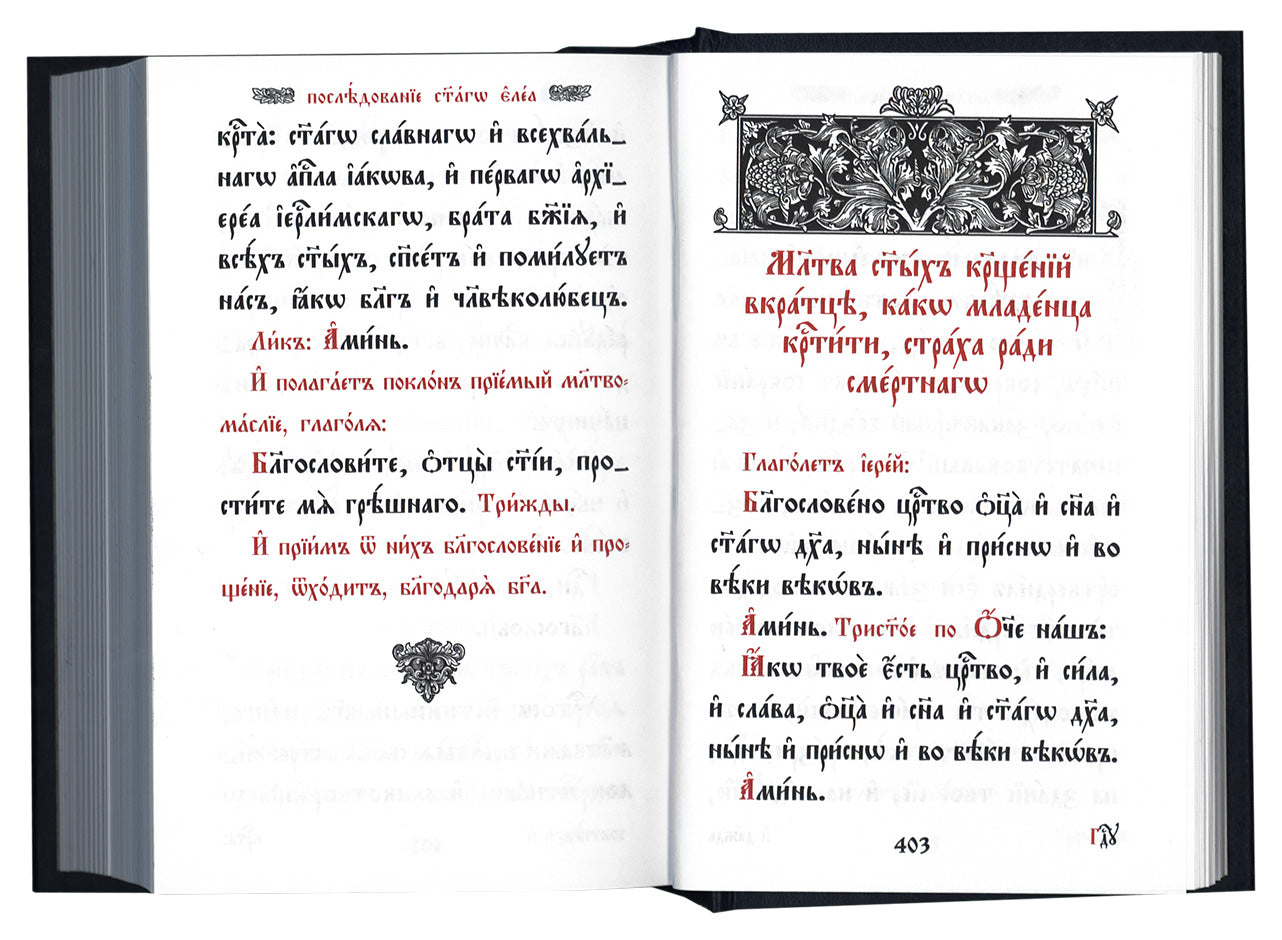 послѣ́дованїе ст҃а́гѡ є҆ле́а
крⷭ҇та̀: ст҃а́гѡ сла́внагѡ и҆ всехва́ль_
нагѡ а҆пⷭ҇ла і҆а́кѡва, и҆ пе́рвагѡ а҆рхї_
ере́а і҆ерⷭ҇ли́мскагѡ, бра́та бж҃їѧ, и҆
всѣ́хъ ст҃ы́хъ, сп҃се́тъ и҆ поми́лꙋетъ
на́съ, ꙗ҆́кѡ бл҃гъ и҆ чл҃вѣколю́бецъ.
Ли́къ: А҆ми́нь.
И҆ полага́етъ покло́нъ прїе́мый мл҃тво-
ма́слїе, глаго́лѧ:
Бл҃гослови́те, ѻ҆тцы̀ ст҃і́и, про_
сти́те мѧ̀ грѣ́шнаго. Три́жды.
И҆ прїи́мъ ѿ ни́хъ бл҃гослове́нїе и҆ про-
ще́нїе, ѿхо́дитъ, бл҃годарѧ̀ бг҃а.
Мл҃тва ст҃ы́хъ кр҃ще́нїй
вкра́тцѣ, ка́кѡ младе́нца
крⷭ҇ти́ти, стра́ха ра́ди
сме́ртнагѡ
Глаго́летъ і҆ере́й:
Бл҃гослове́но црⷭ҇тво ѻ҆ц҃а̀ и҆ сн҃а и҆
ст҃а́гѡ дх҃а, ны́нѣ и҆ при́снѡ и҆ во
вѣ́ки вѣкѡ́въ.
А҆ми́нь. Трист҃о́е по Ѻ҆́ч҃е на́шъ:
Ꙗ҆́кѡ твоѐ є҆́сть црⷭ҇тво, и҆ си́ла,
и҆ сла́ва, ѻ҆ц҃а̀ и҆ сн҃а и҆ ст҃а́гѡ дх҃а,
ны́нѣ и҆ при́снѡ и҆ во вѣ́ки вѣкѡ́въ.
А҆ми́нь.
403
Гдⷭ҇ꙋ